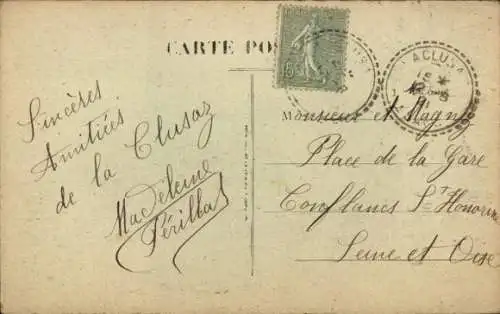 CARTE POS
LA CLUSAZ
Sincères
Amitiées
de la Clusaz
Madeleine
Périllat
Monsieur et Magny
Place de la Gare
Conflans Ste Honorine
Seine et Oise